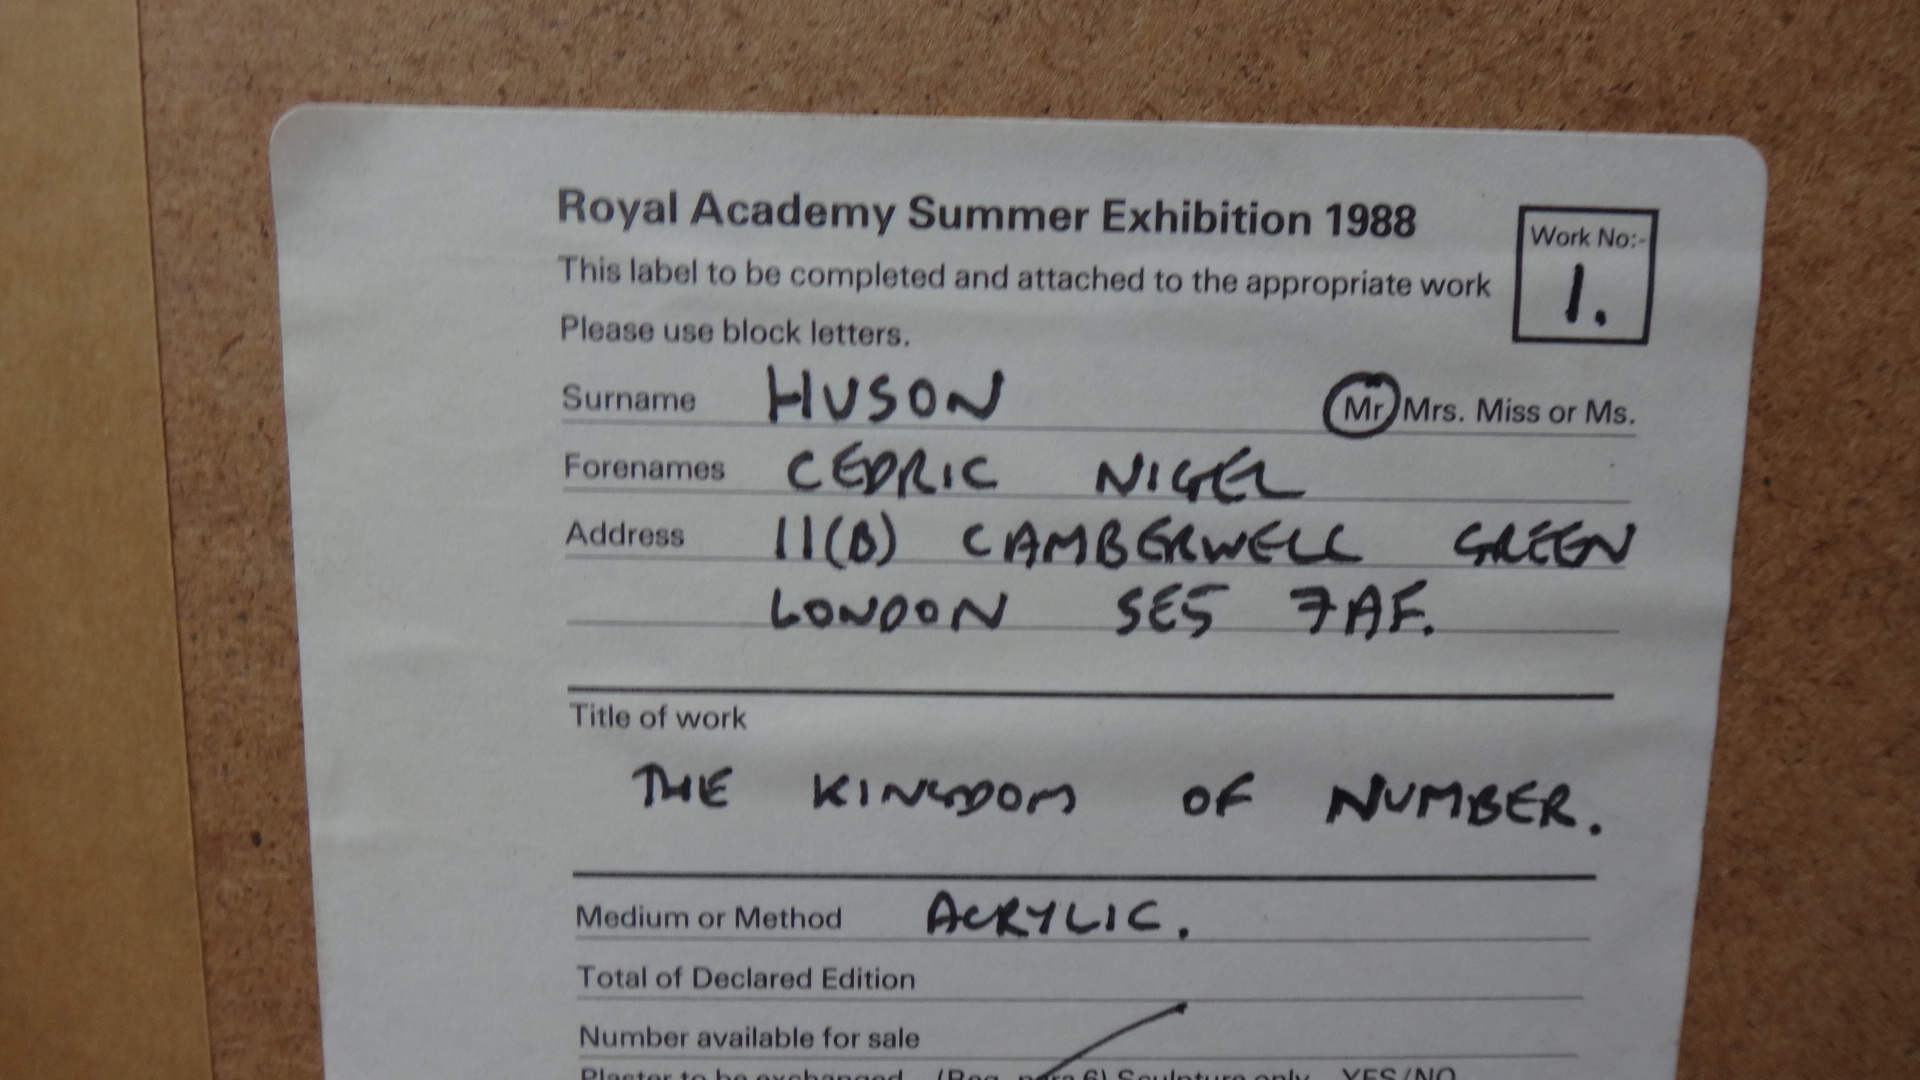 Royal Academy Summer Exhibition 1988
Work No:-
1.
This label to be completed and attached to the appropriate work
Please use block letters.
Surname HUSON Mr Mrs. Miss or Ms.
Forenames CEDRIC NIGEL
Address 11(B) CAMBERWELL GREEN
LONDON SE5 7AF.
Title of work
THE KINGDOM OF NUMBER.
Medium or Method ACRYLIC.
Total of Declared Edition
Number available for sale
Plaster to be exchanged (Reg. para 6) Sculpture only YES/NO